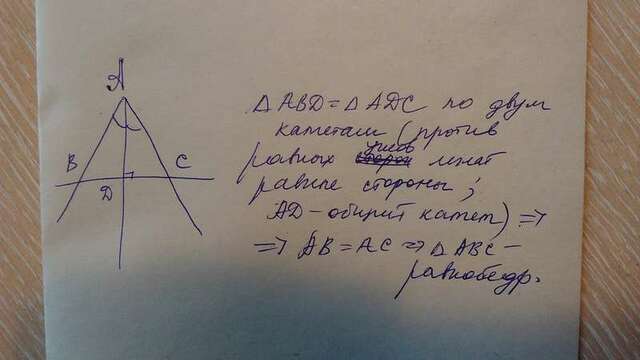 A
B
C
D
Δ ABD = Δ ADC по двум
катетам (против
равных углов лежат
равные стороны;
AD - общий катет) ⇒
⇒ AB = AC ⇒ Δ ABC -
равнобедр.